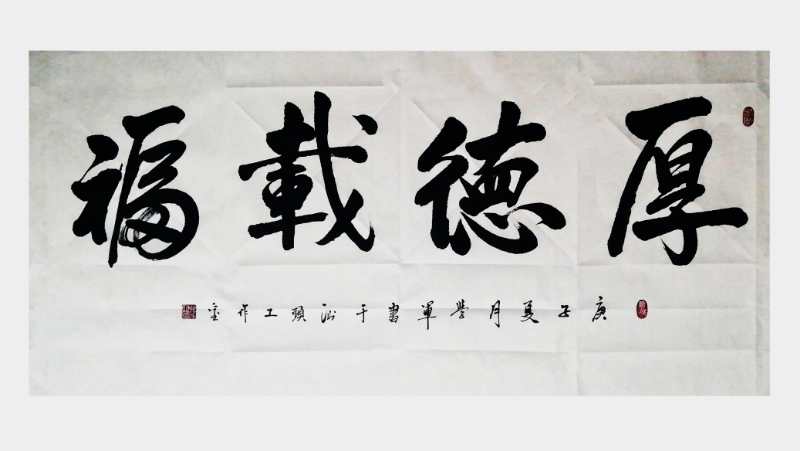 厚德載福
庚子夏月譽軍書于汕頭工作室